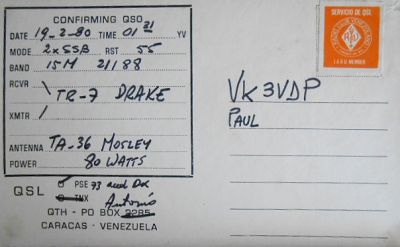 CONFIRMING QSO
DATE 19-2-80 TIME 01 31 YV
MODE 2xSSB RST 55
BAND 15M 21188
RCVR \ TR-7 DRAKE
XMTR /
ANTENNA TA-36 MOSLEY
POWER 80 WATTS
QSL PSE 73 and DX
TNX Antonio
QTH - PO BOX 2285
CARACAS - VENEZUELA
SERVICIO DE QSL
RADIO CLUB VENEZOLANO
IARU MEMBER
VK3VDP
PAUL